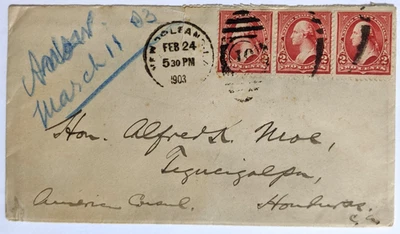 Answ
March 11 03
NEW ORLEANS, LA.
FEB 24
5 30 PM
1903
2 2
2 2
2 2
Hon. Alfred K. Moe,
Tegucigalpa,
American Consul. Honduras.
C. A.